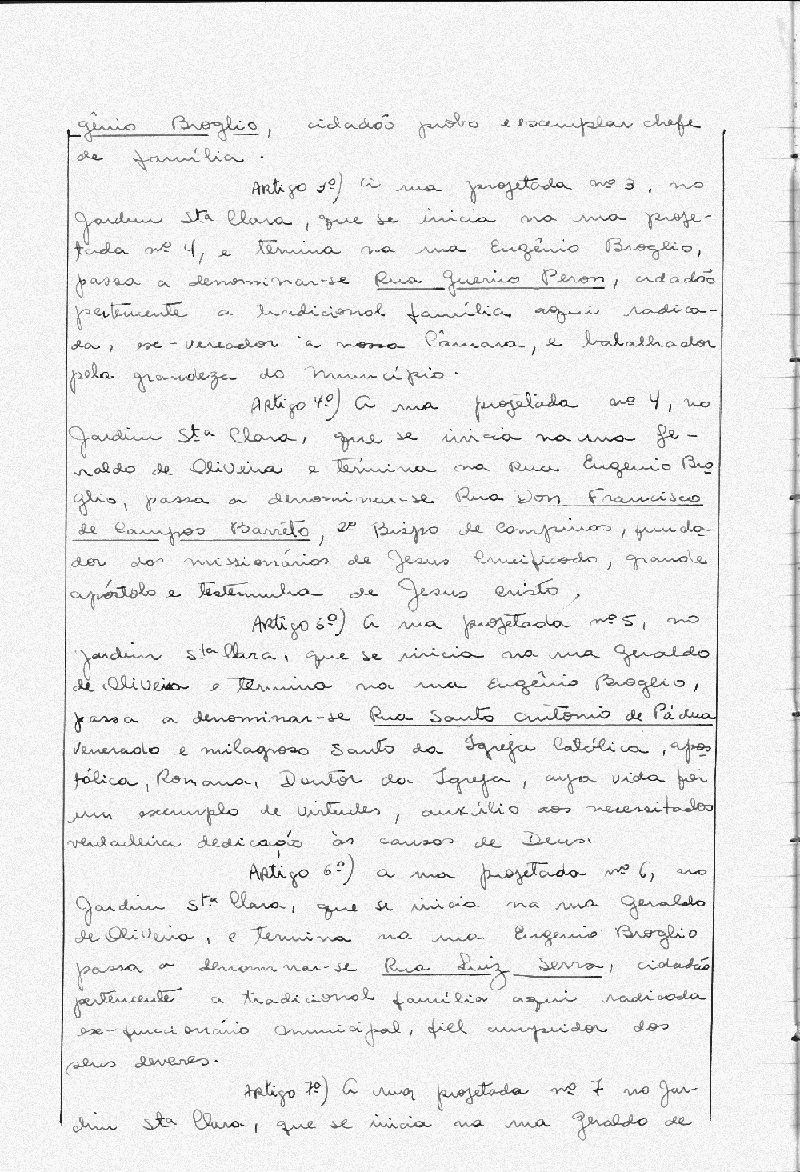 gênio Broglio, cidadão probo e exemplar chefe
de família.
Artigo 3º) A rua projetada nº 3, no
Jardim Sta Clara, que se inicia na rua proje-
tada nº 4, e termina na rua Eugênio Broglio,
passa a denominar-se Rua Guerino Peron, cidadão
pertencente a tradicional família aqui radica-
da, ex-vereador à nossa Câmara, e trabalhador
pela grandeza do Município.
Artigo 4º) A rua projetada nº 4, no
Jardim Sta Clara, que se inicia na rua Ge-
raldo de Oliveira e termina na Rua Eugenio Bro
glio, passa a denominar-se Rua Don Francisco
de Campos Barreto, 2º Bispo de Campinas, funda-
dor dos missionários de Jesus Crucificado, grande
apóstolo e testemunha de Jesus Cristo,
Artigo 5º) A rua projetada nº 5, no
Jardim Sta Clara, que se inicia na rua Geraldo
de Oliveira e termina na rua Eugênio Broglio,
passa a denominar-se Rua Santo Antonio de Pádua
venerado e milagroso Santo da Igreja Católica, apos
tólica, Romana, Doutor da Igreja, cuja vida foi
um exemplo de virtudes, auxílio aos necessitados
verdadeira dedicação às causas de Deus.
Artigo 6º) A rua projetada nº 6, no
Jardim Sta Clara, que se inicia na rua Geraldo
de Oliveira, e termina na rua Eugenio Broglio
passa a denominar-se Rua Luiz Serra, cidadão
pertencente a tradicional família aqui radicada
ex-funcionário municipal, fiel cumpridor dos
seus deveres.
Artigo 7º) A rua projetada nº 7 no Jar-
dim Sta Clara, que se inicia na rua Geraldo de